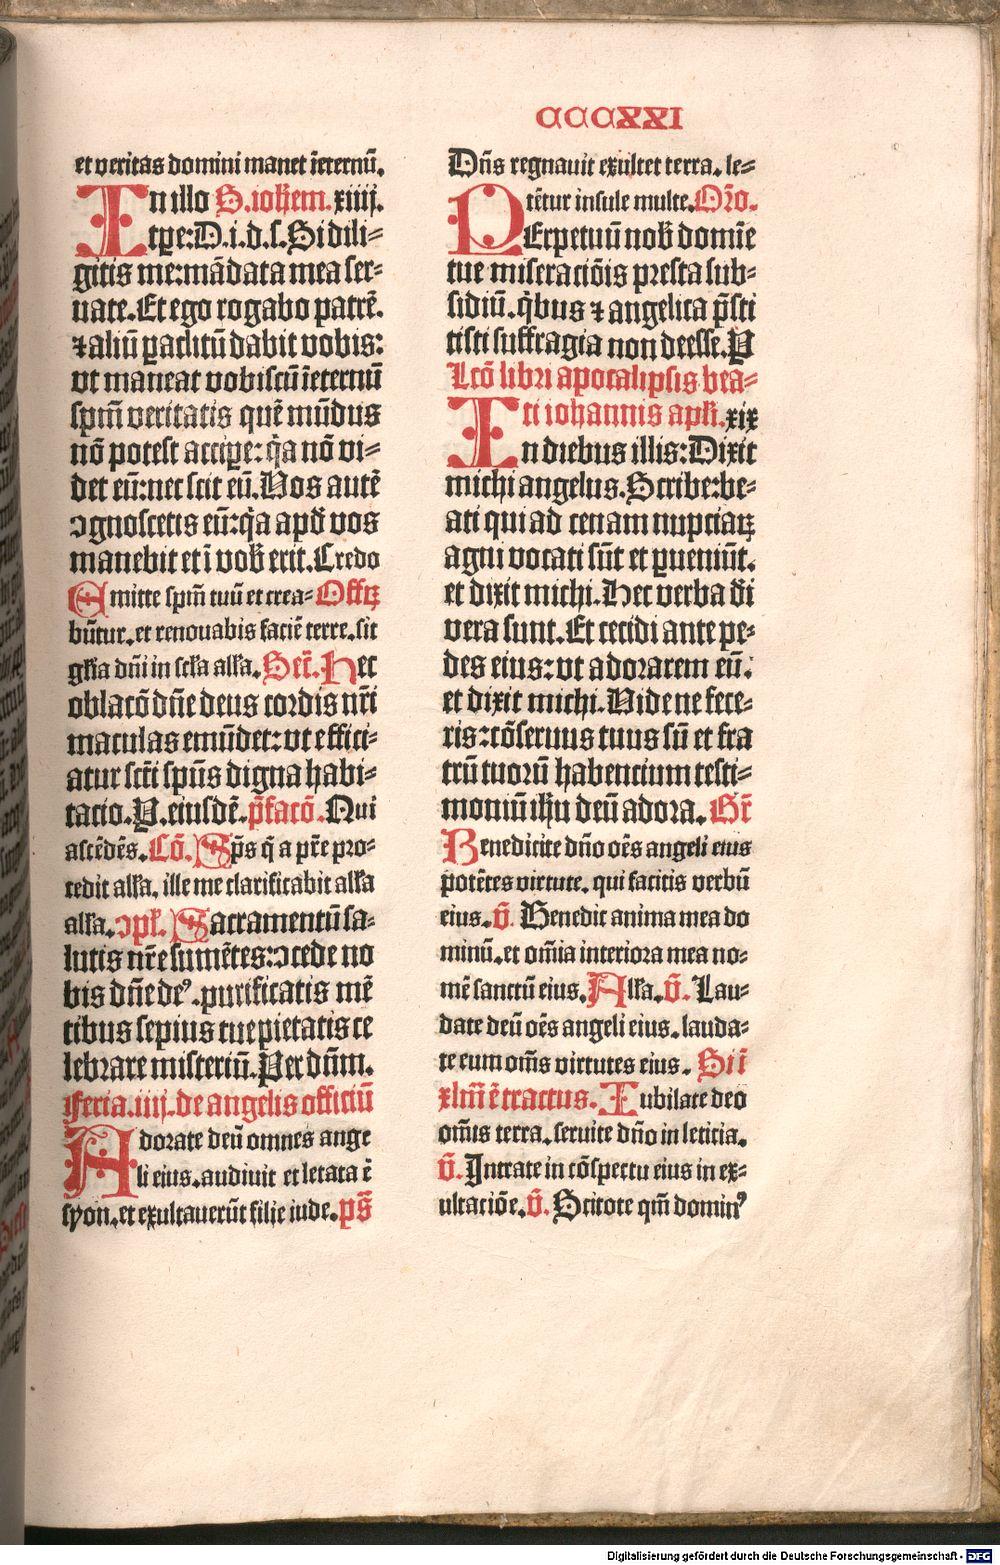 CCCXXI
et veritas domini manet īeternū.
In illo S. ioħem. xiiij.
tꝑe: D. i. d. s. Si dili⸗
gitis me: mādata mea ser⸗
uate. Et ego rogabo patrē.
⁊ aliū paclitū dabit vobis:
vt maneat vobiscū ieternū
spm̄ veritatis quē mūdus
nō potest accipe: q̄a nō vi⸗
det eū: nec scit eū. Vos autē
ꝯgnoscetis eū: q̄a apd̄ vos
manebit et ī vob̄ erit. Credo
Emitte spm̄ tuū et crea⸗ Offꝝ
būtur. et renouabis faciē terre. sit
gl̄ia dn̄i in scl̄a all̄a. Secͬ. Hec
oblacō dn̄e deus cordis nr̄i
maculas emūdet: vt effici⸗
atur sct̄i spūs digna habi⸗
tacio. P. eiusdē. p̄facō. Qui
ascēdēs. Cō. Sp̄s q̄ a pr̄e pro⸗
cedit all̄a. ille me clarificabit all̄a
all̄a. ꝯpl̄. Sacramentū sa⸗
lutis nr̄e sumētes: ꝯcede no
bis dn̄e deꝰ. purificatis mē
tibus sepius tue pietatis ce
lebrare misteriū. Per dn̄m.
Feria. iiij. de angelis officiū
Adorate deū omnes ange
li eius. audiuit et letata ē
syon. et exultauerūt filie iude. pŝ
Dn̄s regnauit exultet terra. le⸗
tētur insule multe. Or̄o.
PErpetuū nob̄ domīe
tue miseraciōis presta sub⸗
sidiū. q̄bus ⁊ angelica p̄sti
tisti suffragia non deesse. P
Lcō libri apocalipsis bea⸗
ti iohannis apl̄i. xix
In diebus illis: Dixit
michi angelus. Scribe: be⸗
ati qui ad cenam nupciaꝝ
agni vocati sūt et ꝓueniūt.
et dixit michi. Hec verba di
vera sunt. Et cecidi ante pe⸗
des eius: vt adorarem eū.
et dixit michi. Vide ne fece⸗
ris: cōseruus tuus sū et fra
trū tuorū habencium testi⸗
moniū ihu deū adora. Gr̄
Benedicite dn̄o oēs angeli eius
potētes virtute. qui facitis verbū
eius. v̄. Benedic anima mea do
minū. et om̄ia interiora mea no⸗
mē sanctū eius. All̄a. v̄. Lau⸗
date deū oēs angeli eius. lauda⸗
te eum om̄s virtutes eius. Sii
xlm̄ ē tractus. Iubilate deo
om̄is terra. seruite dn̄o in leticia.
v̄. Intrate in cōspectu eius in ex⸗
ultaciōe. v̄. Scitote qm̄ dominꝰ
Digitalisierung gefördert durch die Deutsche Forschungsgemeinschaft - DFG